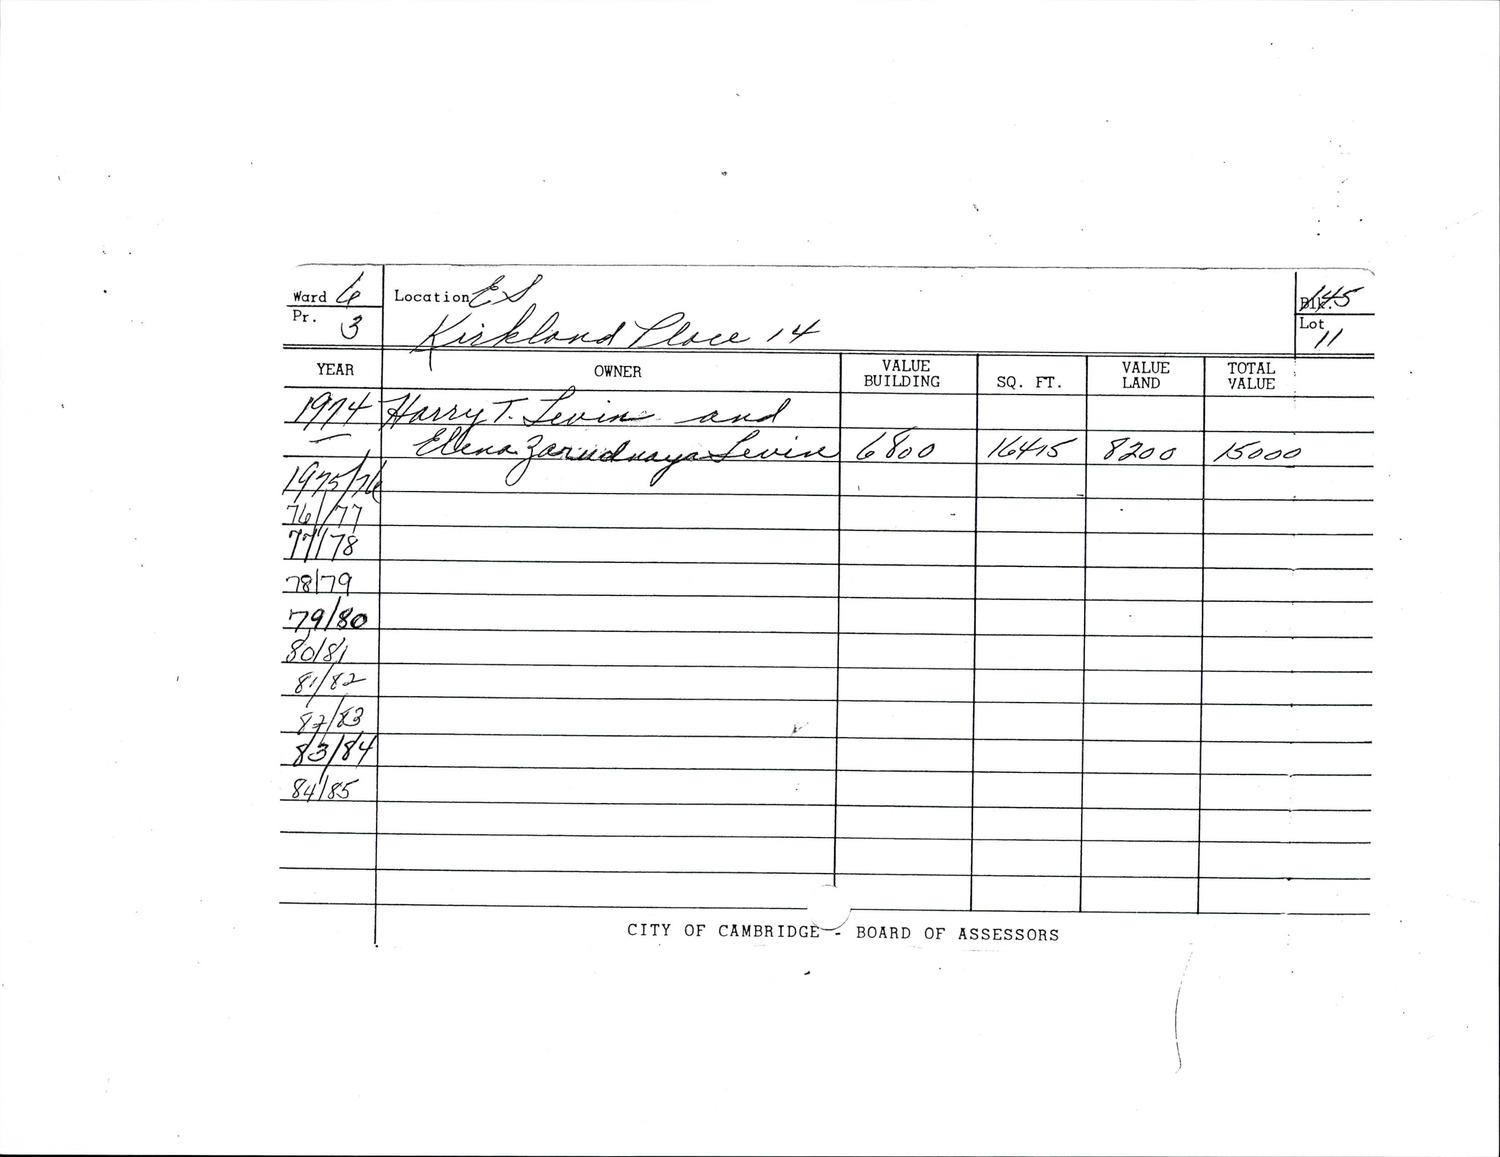 Ward 6 Location E S Blk. 145
Pr. 3 Kirkland Place 14 Lot 11
YEAR OWNER VALUE BUILDING SQ. FT. VALUE LAND TOTAL VALUE
1974 Harry T. Levin and
Elena Zarudnaya Levin 6800 16415 8200 15000
1975/76
76/77
77/78
78/79
79/80
80/81
81/82
82/83
83/84
84/85
CITY OF CAMBRIDGE - BOARD OF ASSESSORS